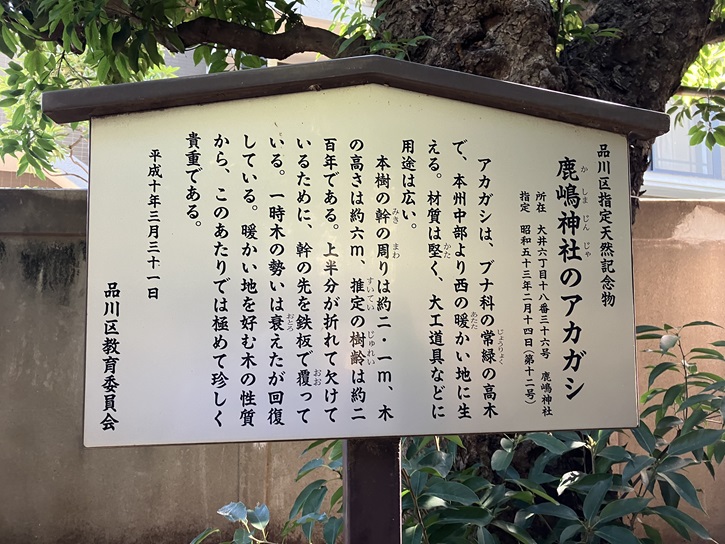 品川区指定天然記念物
鹿嶋神社のアカガシ
か しま じん じゃ
所在 大井六丁目十八番三十六号 鹿嶋神社
指定 昭和五十三年二月十四日(第十二号)
アカガシは、ブナ科の常緑の高木
じょうりょく
で、本州中部より西の暖かい地に生
あたた
える。材質は堅く、大工道具などに
かた
用途は広い。
本樹の幹の周りは約二・一m、木
みき まわ
の高さは約六m、推定の樹齢は約二
すいてい じゅれい
百年である。上半分が折れて欠けて
いるために、幹の先を鉄板で覆って
おお
いる。一時木の勢いは衰えたが回復
おとろ
している。暖かい地を好む木の性質
から、このあたりでは極めて珍しく
貴重である。
平成十年三月三十一日
品川区教育委員会